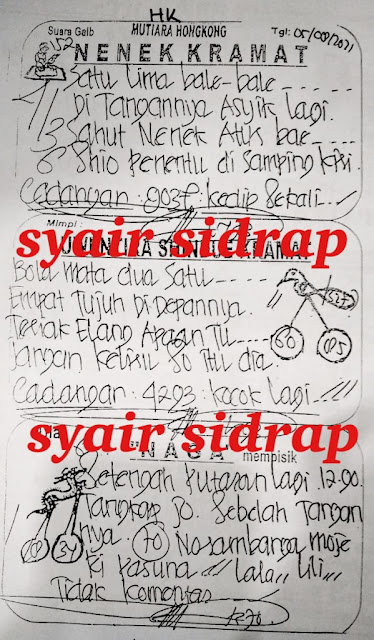 HK
Suara Gaib MUTIARA HONGKONG Tgl: 05/08/2021
52 NENEK KRAMAT
Satu Lima bale-bale
Di Tangannya Asyik Lagi.
Sahut Nenek Atik bae
Shio Penentu di Samping Kiri
Cadangan : 9037 : kedip Sekali
syair sidrap
Mimpi :
KRAMAT
Bola Mata dua Satu
Empat Tujuh Di Depannya.
Teriak Elang Apaan Tu
Jangan Kelisiu 80 Itu dia.
527
60
Cadangan : 4293 : kocok lagi
syair sidrap
"NAGA" mempisik
Setengah Putaran Lagi 12.90.
Tangkap 30. Sebelah Tangan
nya. 70 No Sambarng moje
Ki Pasuna Lala,, Lili,,
Tidak Komentar
1270